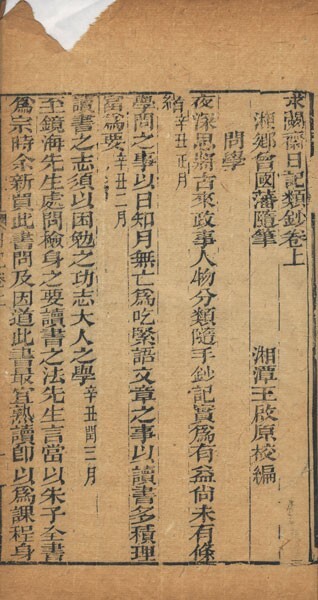 求闕齋日記類鈔卷上
湘鄉曾國藩隨筆　湘潭王啟原校編
問學
夜深思將古來政事人物分類隨手鈔記實爲有益尚未有條
緒辛丑正月
學問之事以日知月無亡爲吃緊語文章之事以讀書多積理
富爲要辛丑二月
讀書之志須以困勉之功志大人之學辛丑閏三月
至鏡海先生處問檢身之要讀書之法先生言當以朱子全書
爲宗時余新買此書問及因道此書最宜熟讀即以爲課程身